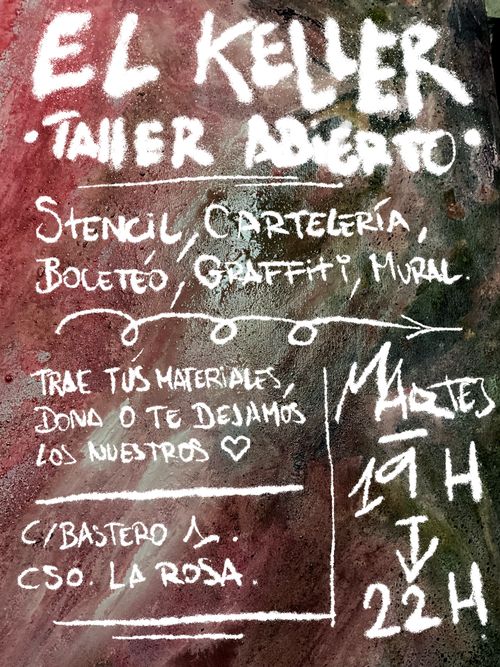 EL KELLER
·TALLER ABIERTO·
STENCIL, CARTELERÍA,
BOCETEO, GRAFFITI, MURAL.
TRAE TUS MATERIALES,
DONA O TE DEJAMOS
LOS NUESTROS ♡
C/BASTERO 1.
CSO. LA ROSA.
MARTES
19 H
↓
22 H.